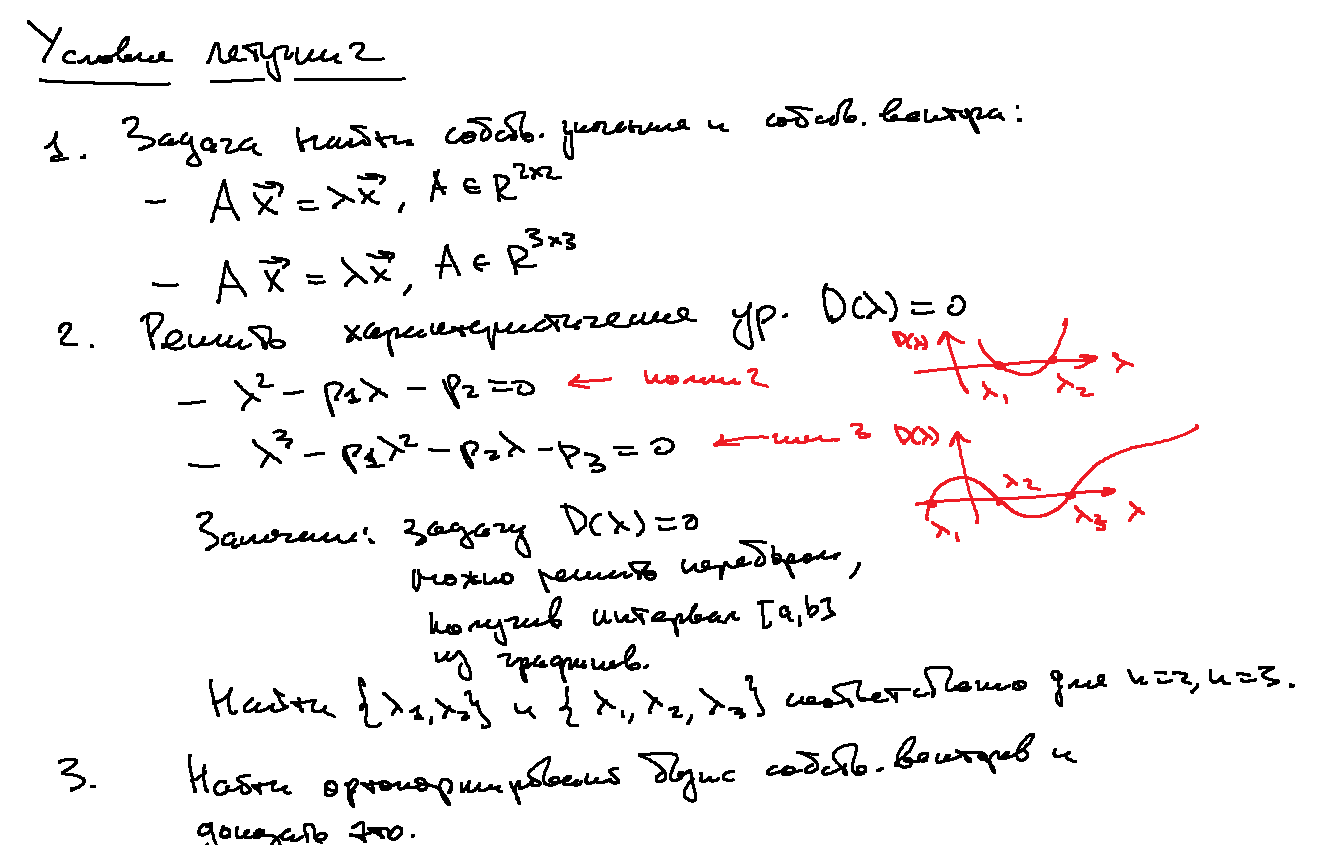 Условие летучки 2
1. Задача найти собств. значения и собств. вектора:
- A x⃗ = λx⃗, A ∈ R^{2×2}
- A x⃗ = λx⃗, A ∈ R^{3×3}
2. Решить характеристические ур. D(λ) = 0
- λ² - p₁λ - p₂ = 0 ←
D(λ) λ₁ λ₂ λ
- λ³ - p₁λ² - p₂λ - p₃ = 0 ← 3
D(λ) λ₁ λ₂ λ₃ λ
задачу D(λ) = 0
можно решить перебором,
получив интервал [a,b]
из графиков.
Найти {λ₁, λ₂} и {λ₁, λ₂, λ₃} соответственно для n=2, n=3.
3. Найти ортонормированный базис собств. векторов и
доказать это.